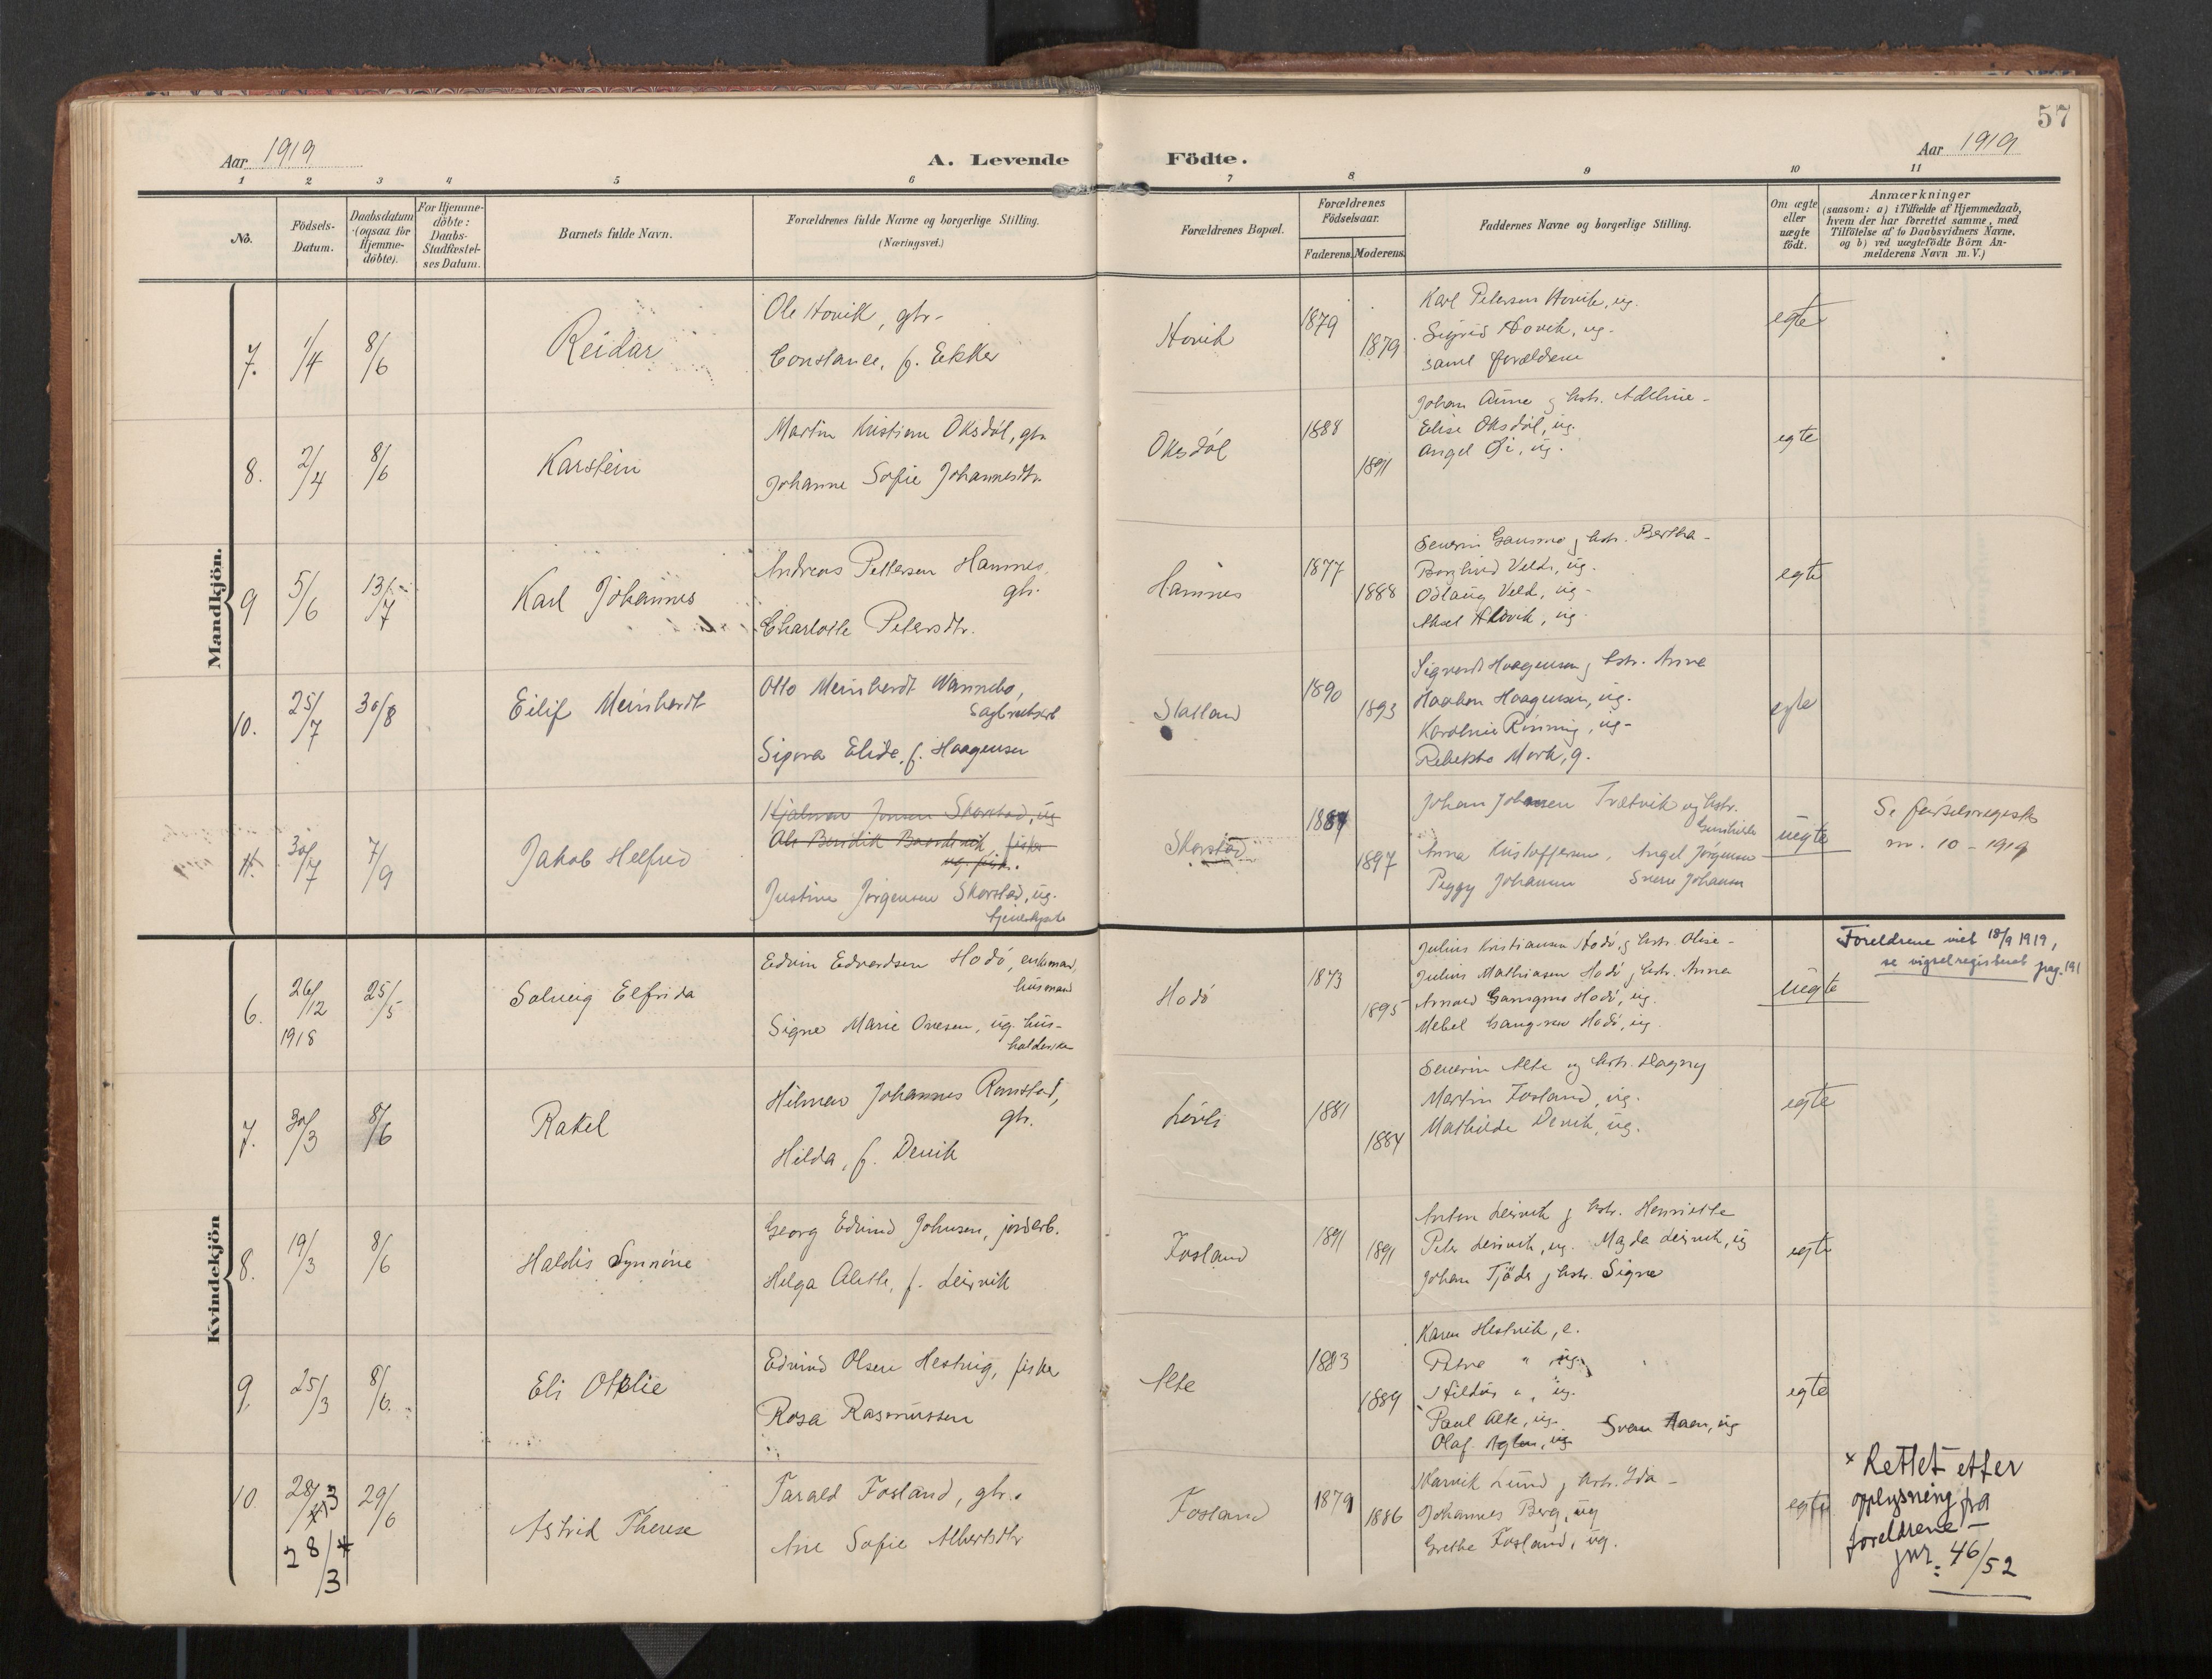 57
Aar 1919
A. Levende Födte.
Aar 1919
1 2 3 4 5 6 7 8 9 10 11
No.
Födsels-
Datum.
Daabsdatum
(ogsaa for
Hjemme-
döbte).
For Hjemme-
döbte:
Daabs-
Stadfæstel-
ses Datum.
Barnets fulde Navn.
Forældrenes fulde Navne og borgerlige Stilling.
(Næringsvei.)
Forældrenes Bopæl.
Forældrenes
Födselsaar.
Faderens. Moderens.
Faddernes Navne og borgerlige Stilling.
Om ægte
eller
uægte
födt.
Anmærkninger
(saasom: a) i Tilfælde af Hjemmedaab,
hvem der har forrettet samme, med
Tilföielse af to Daabsvidners Navne,
og b) ved uægtefödte Börn An-
melderens Navn m. V.)
Mandkjön.
7. 1/4 8/6 Reidar
Ole Hovik, gbr.
Constance, f. Ekker
Hovik 1879 1879
Karl Petersen Hovik, ug.
Sigrid Hovik, ug.
samt forældrene
egte
8. 2/4 8/6 Karstein
Martin Kristian Oksdöl, gbr
Johanne Sofie Johannesdtr.
Oksdöl 1888 1891
Johan Aune g hstr. Adeline
Elise Oksdöl, ug.
Angel Öi, ug.
egte
9 5/6 13/7 Karl Johannes
Andreas Pettersen Hamnes,
gbr.
Charlotte Petersdtr.
Hamnes 1877 1888
Severin Gansmo g hstr. Bertha
Borghild Veld, ug.
Odlaug Veld, ug.
Aksel Hovik, ug.
egte
10. 25/7 30/8 Eilif Meinhardt
Otto Meinhardt Wannebo,
Sagbruksarb
Signora Elide, f. Haagensen
Statland 1890 1893
Sigvardt Haagensen g hstr. Anna
Haakon Haagensen, ug.
Karoline Rönning, ug.
Rebekka Mork, g.
egte
11. 30/7 7/9 Jakob Helfred
Hjalmar Jensen Skorstad, ug
Ole Bendik Baardvik fisker
ug. fisk.
Justine Jörgensen Skorstad, ug.
tjenestepike
Skorstad 1887 1897
Johan Johansen Tvetvik og hstr.
Gunhilde
Anna Kristoffersen, Angel Jörgensen
Peggy Johansen Sverre Johansen
uegte
Se födselsregister
nr. 10 - 1919
Kvindekjön
6. 26/12 1918 25/5 Solveig Elfrida
Edvin Edvardsen Hodö, enkemand,
husmand
Signe Marie Ovesen, ug. hus-
holderske
Hodö 1873 1895
Julius Kristiansen Hodö g hstr. Olise
Julius Mathiasen Hodö g hstr. Anna
Arnold Hodö, ug.
Mebel Hodö, ug.
uegte
Foreldrene viet 18/9 1919,
se vigselregisteret pag. 191
7. 30/3 8/6 Rakel
Hilmar Johannes Ramstad,
gbr.
Hilda, f. Devik
Lövli 1881 1884
Severin Alte og hstr. Dagny
Martin Fosland, ug.
Mathilde Devik, ug.
egte
8. 19/3 8/6 Haldis Synnöve
Georg Edvind Johnsen, jordarb.
Helga Alette, f. Leirvik
Fosland 1891 1891
Anton Leirvik g hstr. Henriette
Peter Leirvik, ug. Magda Leirvik, ug
Johan Tjöder g hstr. Signe
egte
9. 25/3 8/6 Eli Otelie
Edvind Olsen Hestvig, fisker
Rosa Rasmussen
Alte 1883 1889
Karen Hestvik, e.
Petra " ug.
Hildus " ug.
Paul Alte, ug. Sven Aaen, ug
Olaf ug
egte
10. 28/3 29/6 Astrid Therese
28/3 *
Tarald Fosland, gbr.
Ane Sofie Albertsdtr
Fosland 1879 1886
Narvik Lund g hstr. Ida
Johannes Berg, ug
Grethe Fosland, ug.
egte
* Rettet etter
opplysning fra
foreldrene -
jnr. 46/52